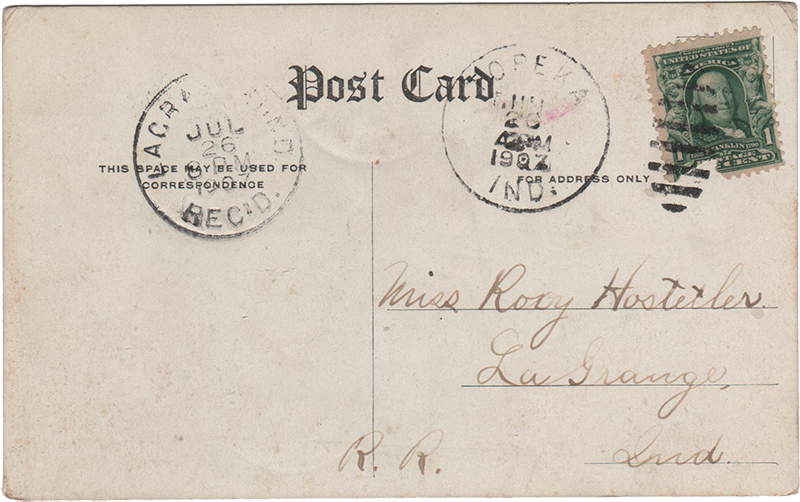 Post Card
THIS SPACE MAY BE USED FOR
CORRESPONDENCE
FOR ADDRESS ONLY
LAGRANGE, IND.
JUL
26
PM
1907
REC'D.
TOPEKA
JUL
26
PM
1907
IND.
SERIES 1902
UNITED STATES OF
AMERICA
FRANKLIN 1790
1
1
POSTAGE
CENT
Miss Roxy Hostetler.
La Grange,
R. R.
Ind.